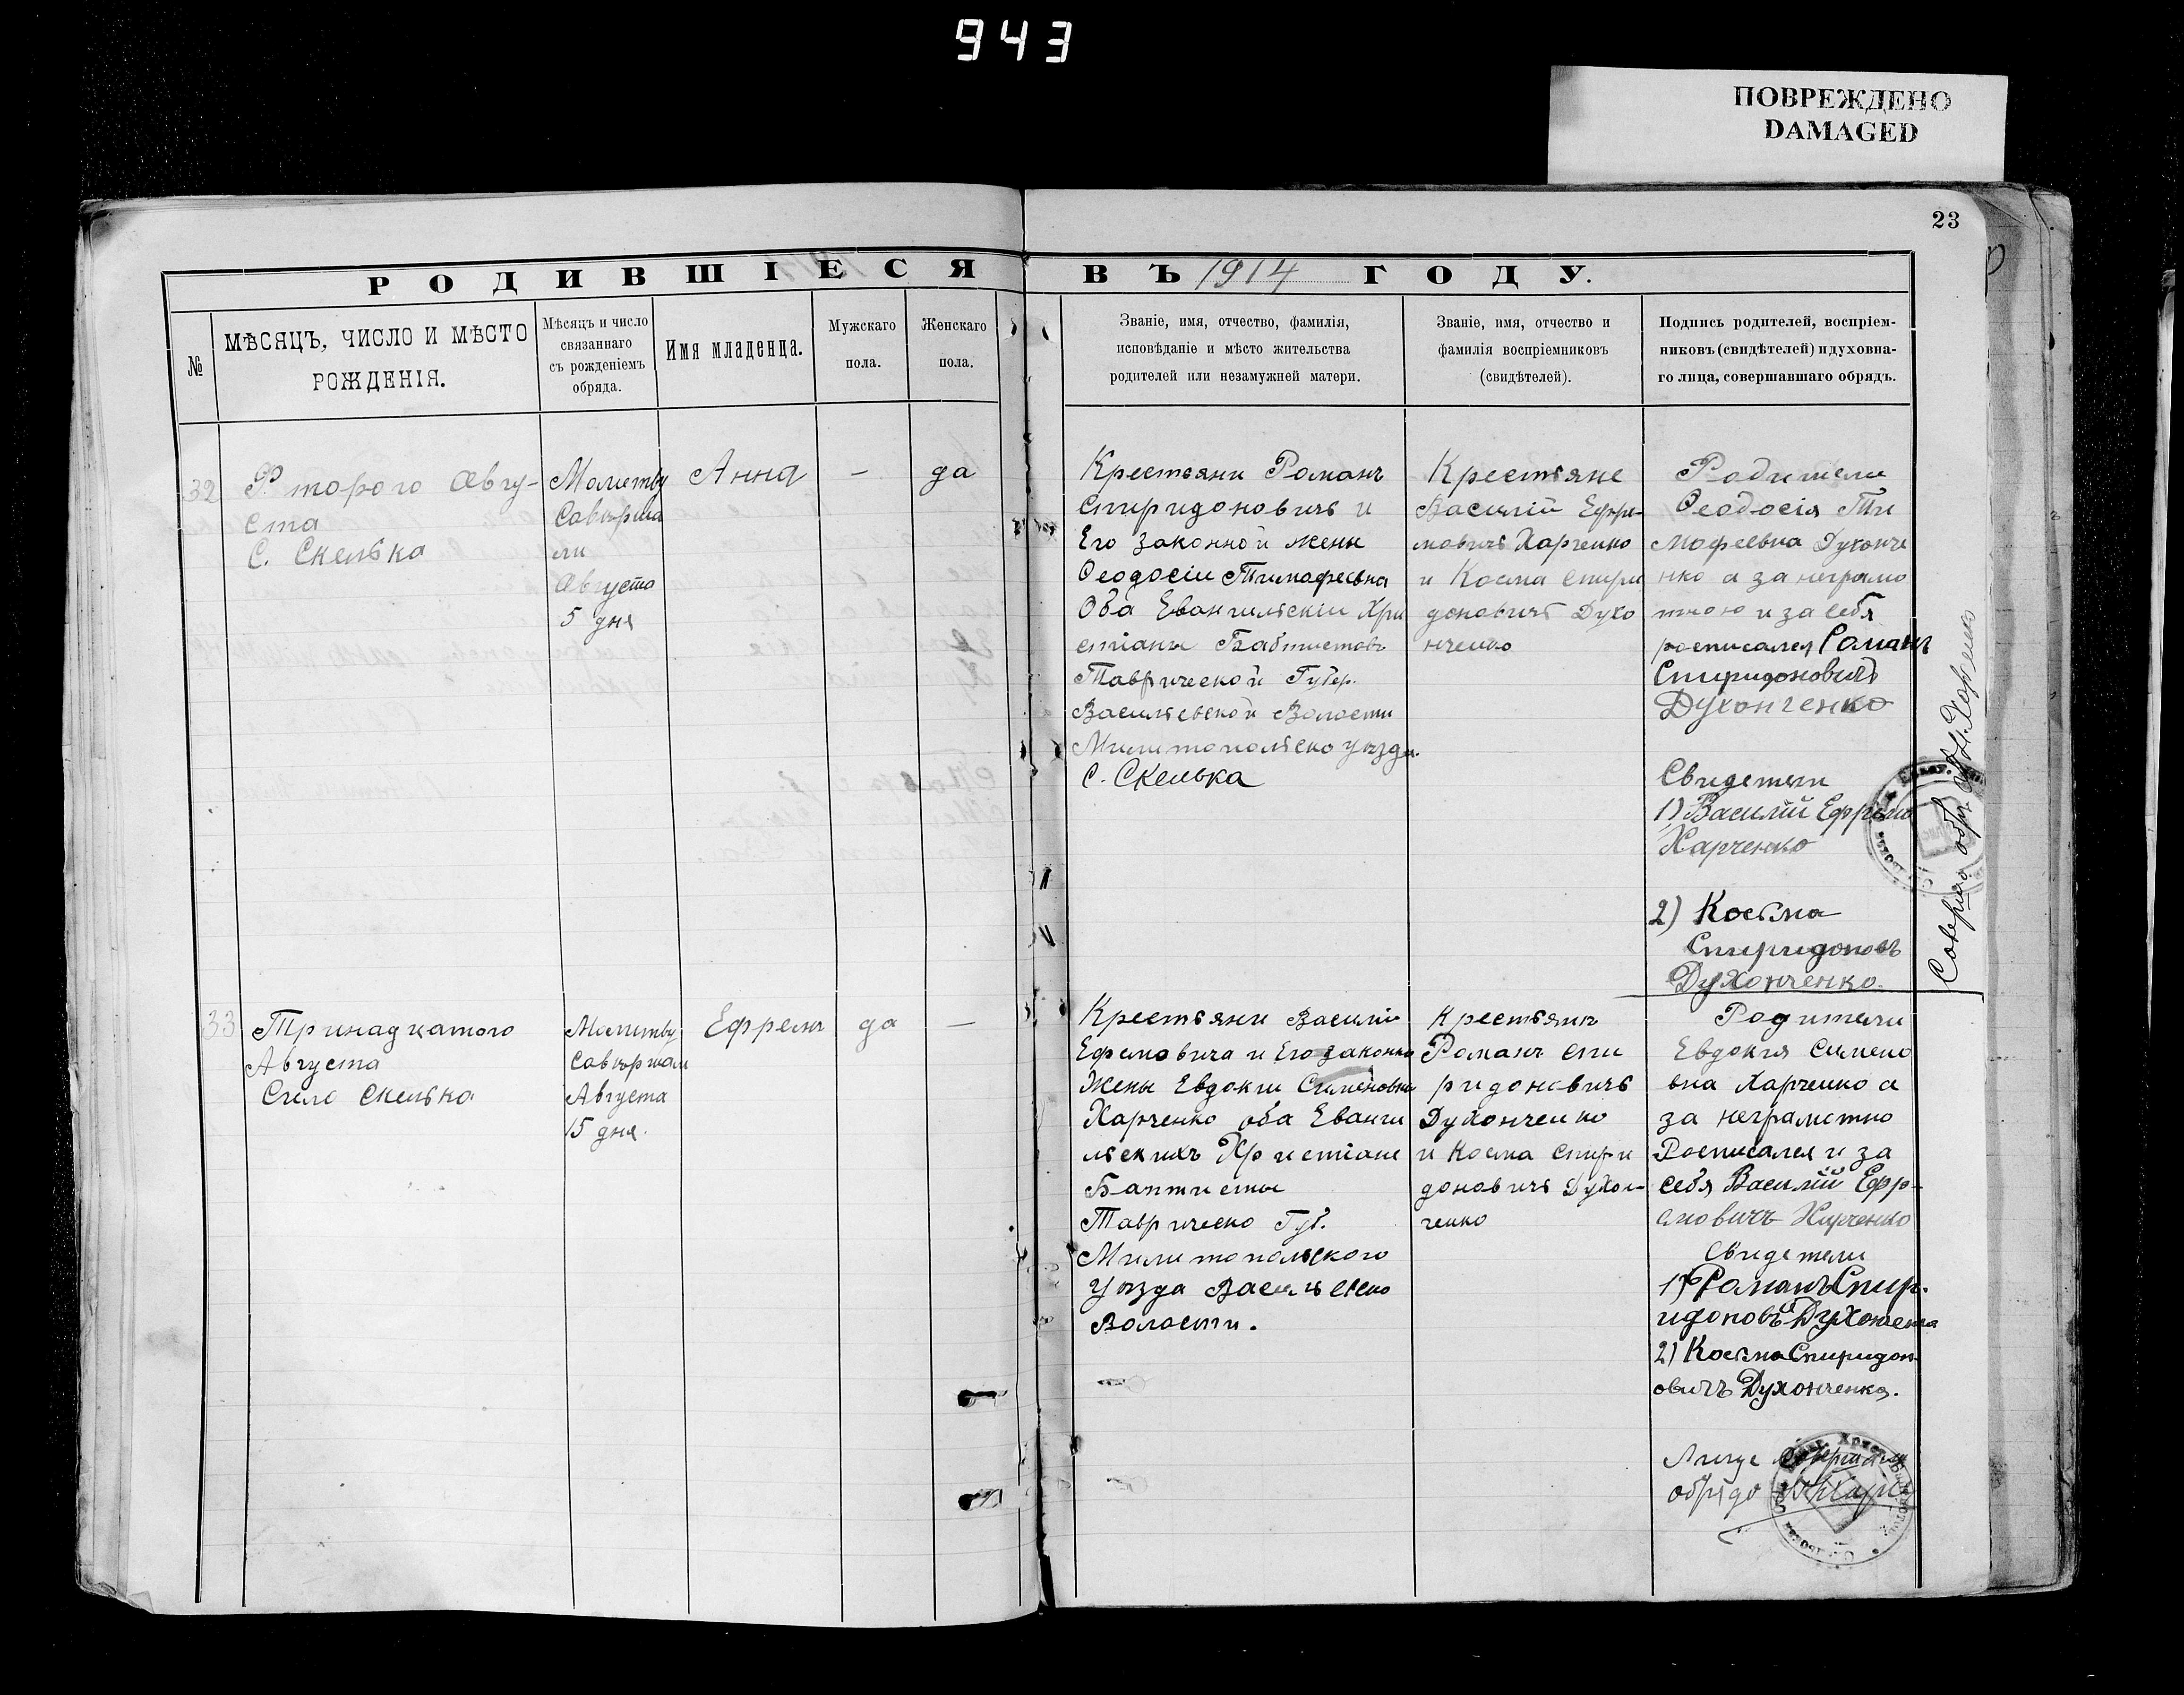 943
ПОВРЕЖДЕНО
DAMAGED
23
РОДИВШІЕСЯ ВЪ 1914 ГОДУ.
№
МѢСЯЦЪ, ЧИСЛО И МѢСТО
РОЖДЕНІЯ.
Мѣсяцъ и число
связаннаго
съ рожденіемъ
обряда.
Имя младенца.
Мужскаго
пола.
Женскаго
пола.
Званіе, имя, отчество, фамилія,
исповѣданіе и мѣсто жительства
родителей или незамужней матери.
Званіе, имя, отчество и
фамилія воспріемниковъ
(свидѣтелей).
Подпись родителей, воспріем-
никовъ (свидѣтелей) и духовна-
го лица, совершавшаго обрядъ.
32
торого Авгу-
ста
С. Скелька
Молитву
Совѣрша
ли
Августа
5 дня
Анна
-
да
Крестьяни Романъ
Спиридоновичъ и
Его законной жены
Ѳеодосіи Тимофеевна
Оба Евангильскіи Хри
стіаны Баптистовъ
Таврической Губер.
Васильевской Воласти
Милитопольско уѣзда.
С. Скелька
Крестяне
Василій Ефре-
мовичъ Харченко
и Косма Спири
доновичъ Духо
нченко
Родители
Ѳеодосія Ти
мофеевна Духонче
нко а за неграмо
тною и за себя
росписался Романъ
Спиридоновичъ
Духонченко
Свидетели
1) Василій Ефремо
Харченко
2) Косма
Спиридоновъ
Духонченко.
33
Тринадцатого
Августа
Село Скелька
Молитву
Совѣршали
Августа
15 дня.
Ефремъ
да
-
Крестьяни Василі
Ефремовича и Его законно
Жены Евдокии Симёновны
Харченко оба Еванги
льскихъ Христіане
Баптисты
Таврическо Губ.
Милитопольского
Уѣзда Васильевско
Воласти.
Крестьянъ
Романъ Спи
ридоновичъ
Духонченко
и Косма Спири
доновичъ Духон-
ченко
Родители
Евдокия Симено
вна Харченко а
за неграмотно
Росписался и за
себя Василій Ефр-
емовичъ Харченко
Свидетели
1) Романъ Спир-
идоновъ Духонченко
2) Косма Спиридон-
овичъ Духонченко.
обрядъ